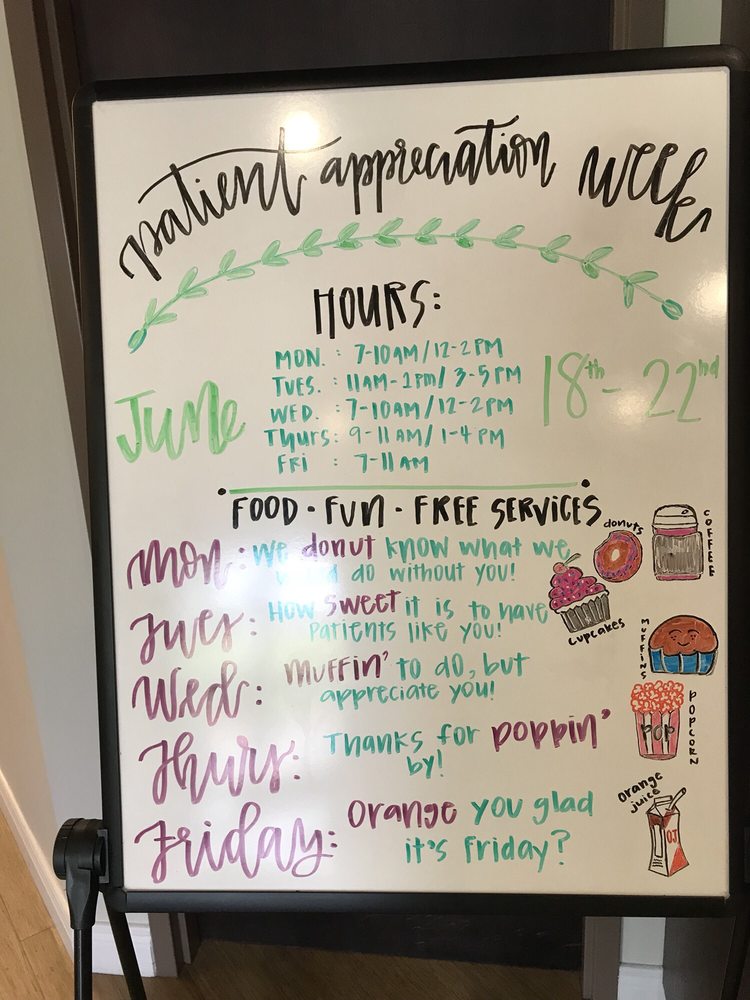 patient appreciation week
HOURS:
MON. : 7-10AM/12-2PM
TUES. : 11AM-1PM/3-5PM
WED. : 7-10AM/12-2PM
Thurs: 9-11AM/1-4PM
FRI : 7-11AM
June
18th - 22nd
FOOD · FUN · FREE SERVICES
Mon: We donut know what we
do without you!
Tues: How sweet it is to have
patients like you!
Wed: Muffin' to do, but
appreciate you!
Thurs: Thanks for poppin'
by!
Friday: Orange you glad
it's Friday?
donuts
COFFEE
cupcakes
MUFFINS
POP
POPCORN
orange
juice
OJ